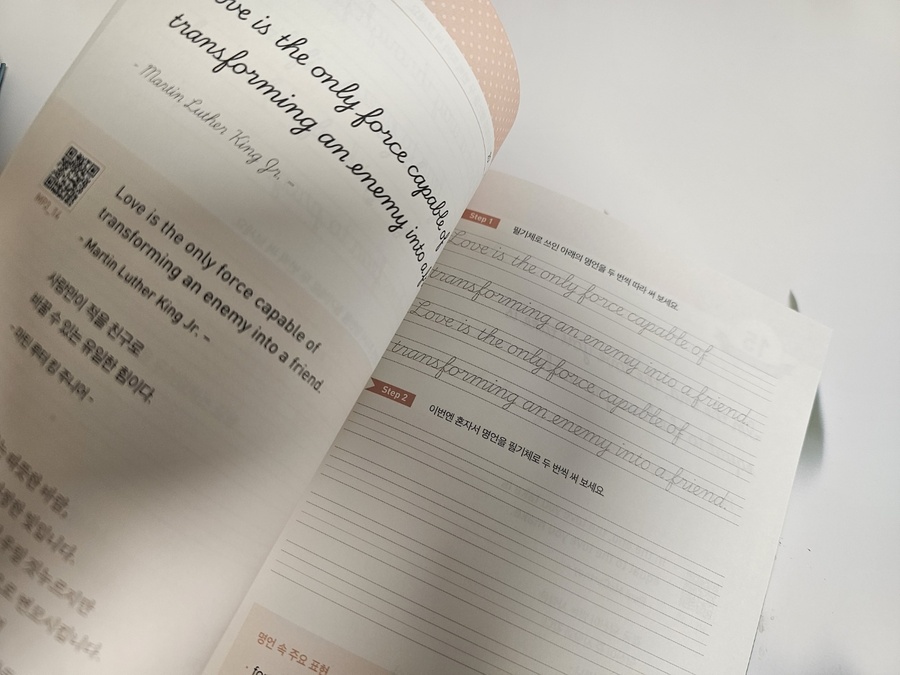 ove is the only force capable of
transforming an enemy into a f
- Martin Luther King Jr. -
MP3_14
Love is the only force capable of
transforming an enemy into a friend.
- Martin Luther King Jr. -
사랑만이 적을 친구로
바꿀 수 있는 유일한 힘이다.
- 마틴 루터 킹 주니어 -
바람,
Step 1
필기체로 쓰인 아래의 명언을 두 번씩 따라 써 보세요.
Love is the only force capable of
transforming an enemy into a friend.
Love is the only force capable of
transforming an enemy into a friend.
Step 2
이번엔 혼자서 명언을 필기체로 두 번씩 써 보세요.
명언 속 주요 표현